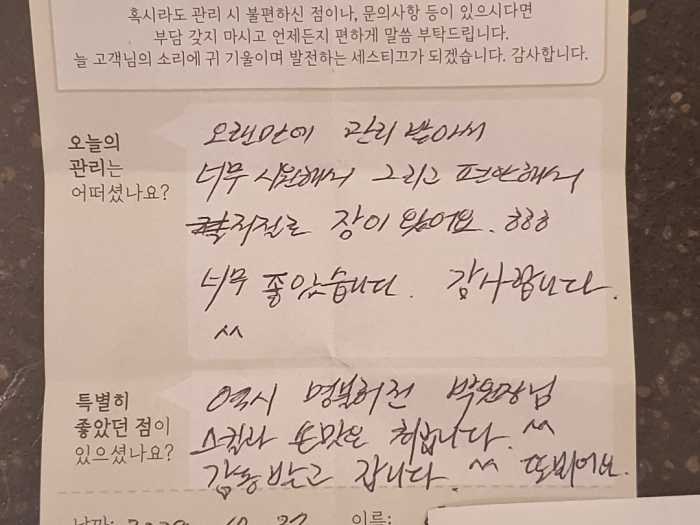 혹시라도 관리 시 불편하신 점이나, 문의사항 등이 있으시다면
부담 갖지 마시고 언제든지 편하게 말씀 부탁드립니다.
늘 고객님의 소리에 귀 기울이며 발전하는 세스티끄가 되겠습니다. 감사합니다.
오늘의
관리는
어떠셨나요?
오랜만에 관리 받아서
너무 시원해서 그리고 편안해서
저절로 잠이 왔어요. ㅎㅎㅎ
너무 좋았습니다. 감사합니다.
^^
특별히
좋았던 점이
있으셨나요?
역시 명불허전 박원장님
스킬과 손맛은 최곱니다. ^^
감동받고 갑니다. ^^ 또뵈어요.
날짜: 이름: